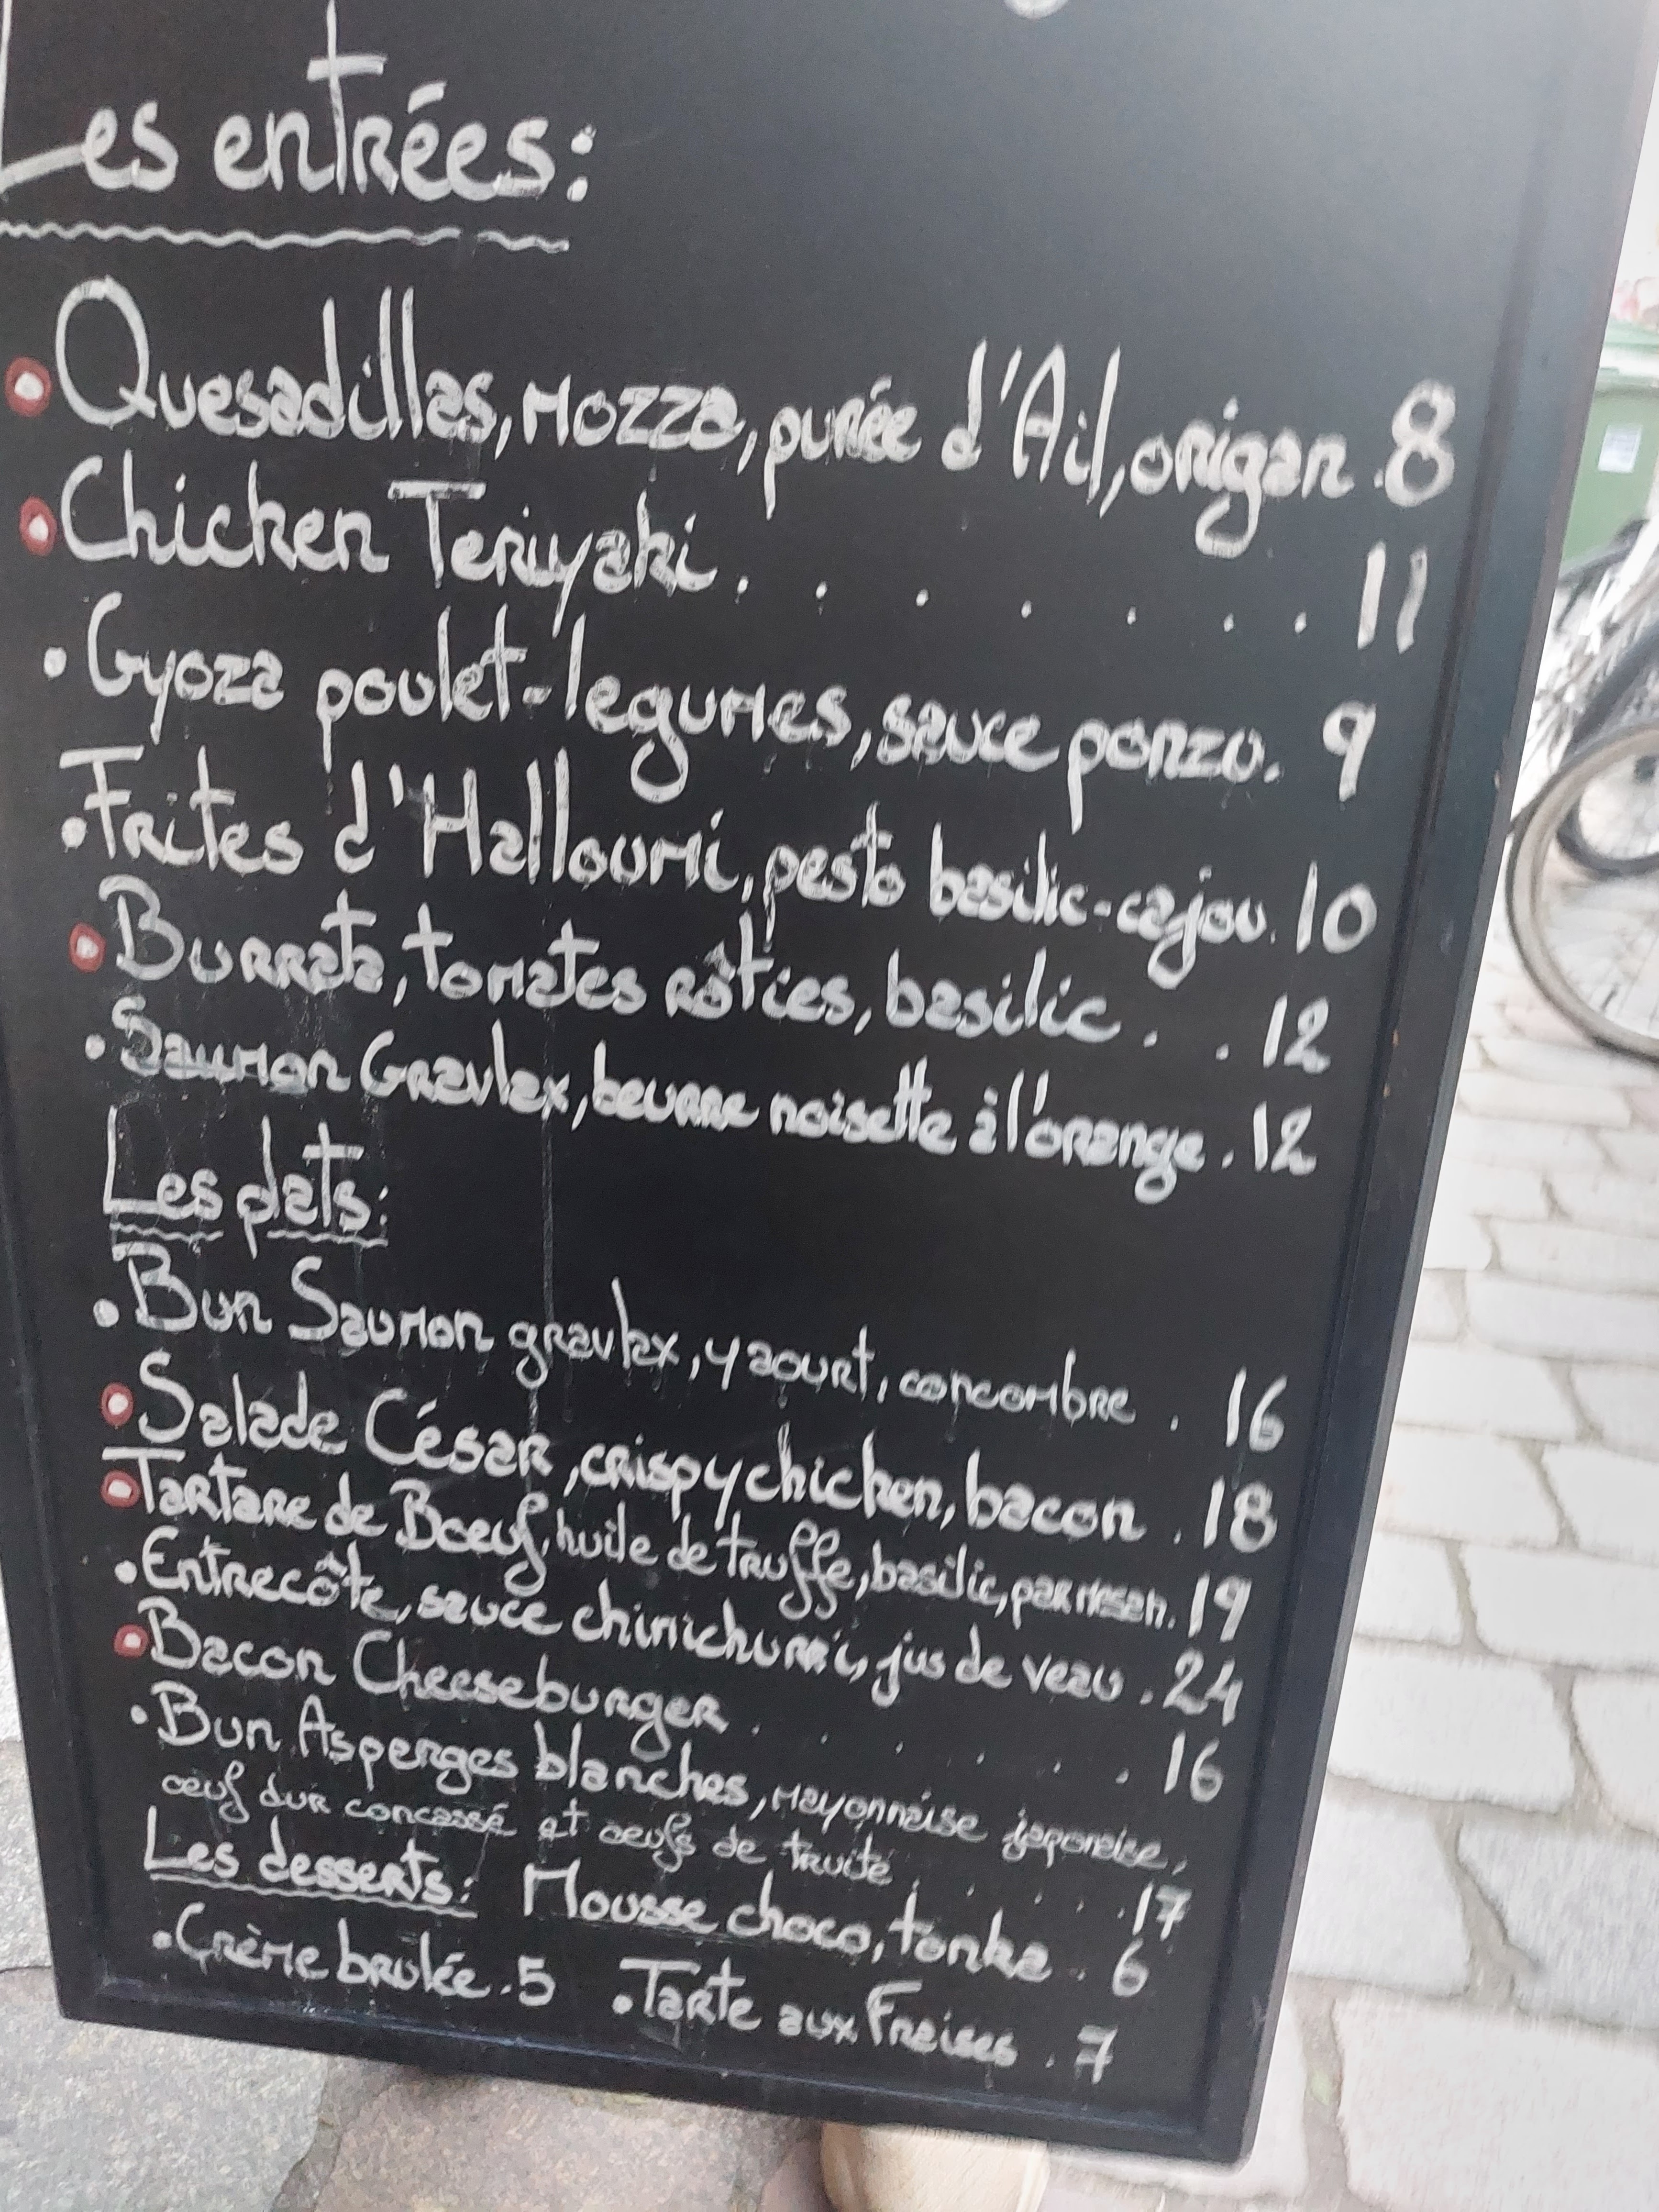 Les entrées:
• Quesadillas, Mozza, purée d'Ail, origan . 8
• Chicken Teriyaki . . . . . . . 11
• Gyoza poulet-legumes, sauce ponzu. 9
• Frites d'Halloumi, pesto basilic-cajou. 10
• Burrata, tomates rôties, basilic . . 12
• Saumon Gravlax, beurre noisette à l'orange . 12
Les plats:
• Bun Saumon gravlax, yaourt, concombre . 16
• Salade César, crispy chicken, bacon . 18
• Tartare de Bœuf, huile de truffe, basilic, parmesan. 19
• Entrecôte, sauce chimichurri, jus de veau . 24
• Bacon Cheeseburger . . . . . . 16
• Bun Asperges blanches, mayonnaise japonaise,
œuf dur concassé et œufs de truite . . . . . 17
Les desserts: Mousse choco, tonka . 6
• Crème brulée . 5 • Tarte aux Fraises . 7